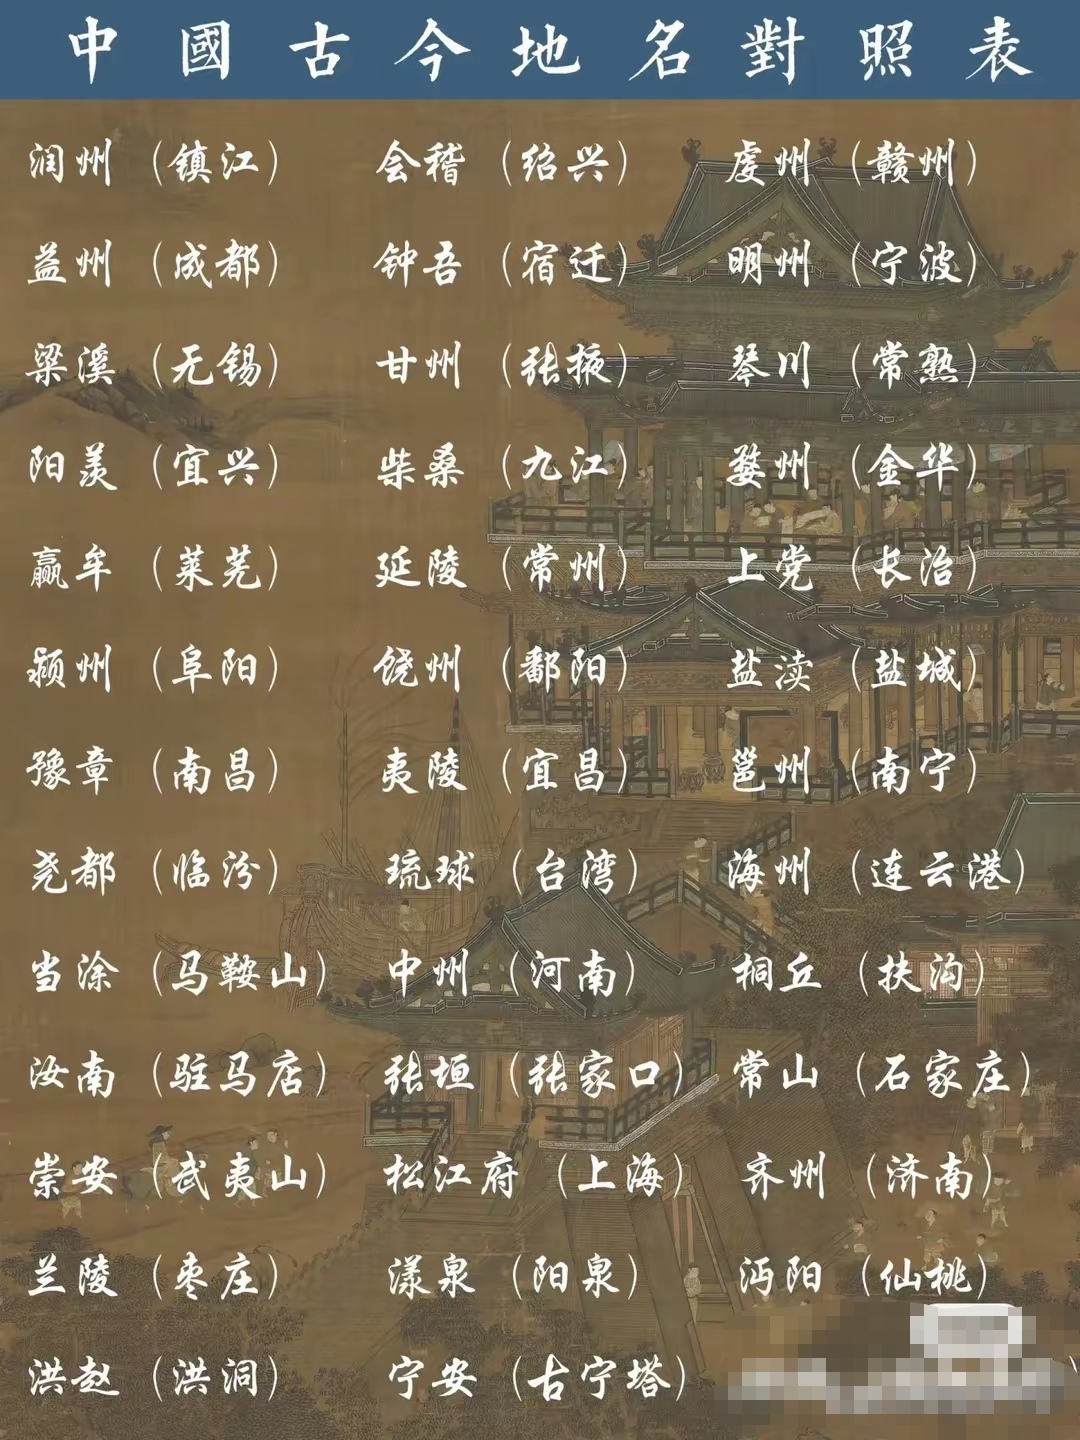 中國古今地名對照表
润州（镇江） 会稽（绍兴） 虔州（赣州）
益州（成都） 钟吾（宿迁） 明州（宁波）
梁溪（无锡） 甘州（张掖） 琴川（常熟）
阳羡（宜兴） 柴桑（九江） 婺州（金华）
赢牟（莱芜） 延陵（常州） 上党（长治）
颍州（阜阳） 饶州（鄱阳） 盐渎（盐城）
豫章（南昌） 夷陵（宜昌） 邕州（南宁）
尧都（临汾） 琉球（台湾） 海州（连云港）
当涂（马鞍山） 中州（河南） 桐丘（扶沟）
汝南（驻马店） 张垣（张家口） 常山（石家庄）
崇安（武夷山） 松江府（上海） 齐州（济南）
兰陵（枣庄） 漾泉（阳泉） 沔阳（仙桃）
洪赵（洪洞） 宁安（古宁塔）